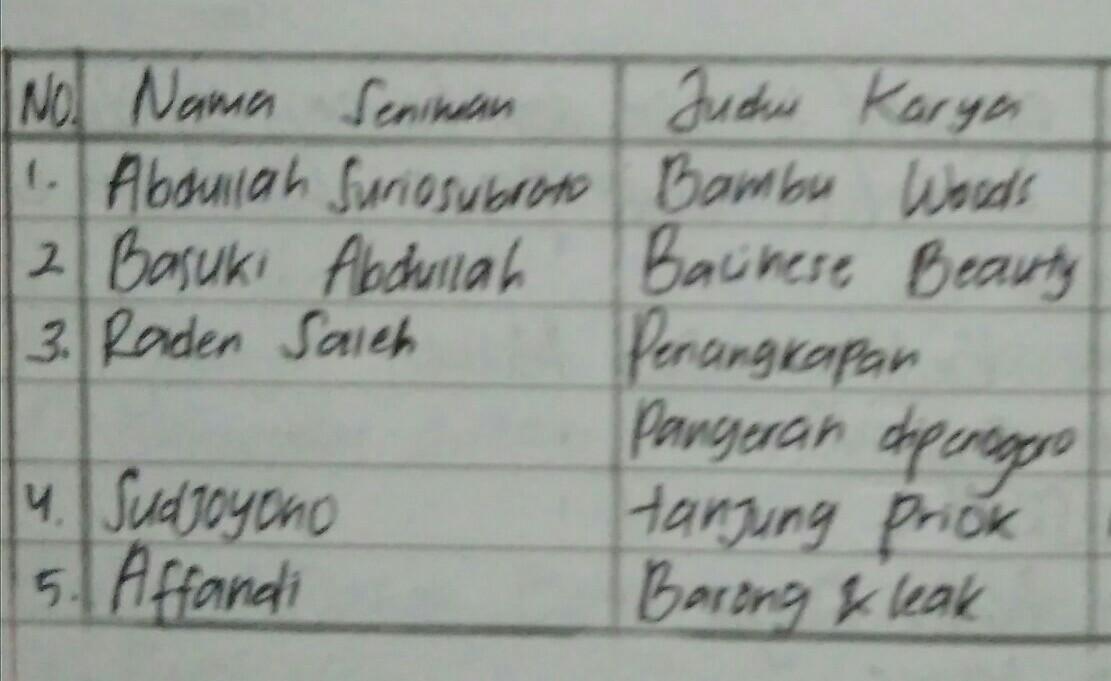 NO. Nama Seniman Judul Karya
1. Abdullah Suriosubroto Bambu Woods
2 Basuki Abdullah Balinese Beauty
3. Raden Saleh Penangkapan
Pangeran dipenogoro
4. Sudjoyono tanjung Priok
5. Affandi Barong & leak